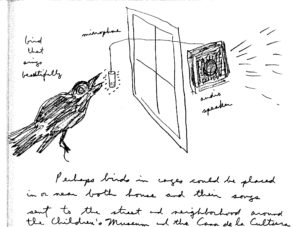 bird
that
sings
beautifully
microphone
audio
speaker
Perhaps birds in cages could be placed
in a near both house and their songs
sent to the street and neighborhood around
the Children's Museum and the Casa de la Cultura